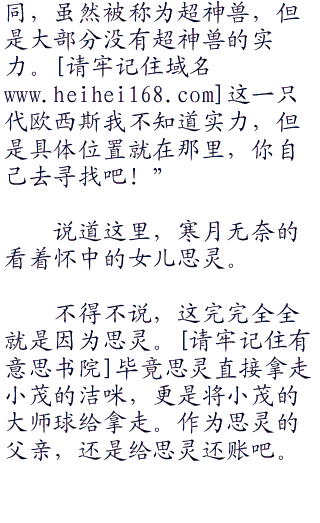 同，虽然被称为超神兽，但
是大部分没有超神兽的实
力。[请牢记住域名
www.heihei168.com]这一只
代欧西斯我不知道实力，但
是具体位置就在那里，你自
己去寻找吧！”
说道这里，寒月无奈的
看着怀中的女儿思灵。
不得不说，这完完全全
就是因为思灵。[请牢记住有
意思书院]毕竟思灵直接拿走
小茂的洁咪，更是将小茂的
大师球给拿走。作为思灵的
父亲，还是给思灵还账吧。